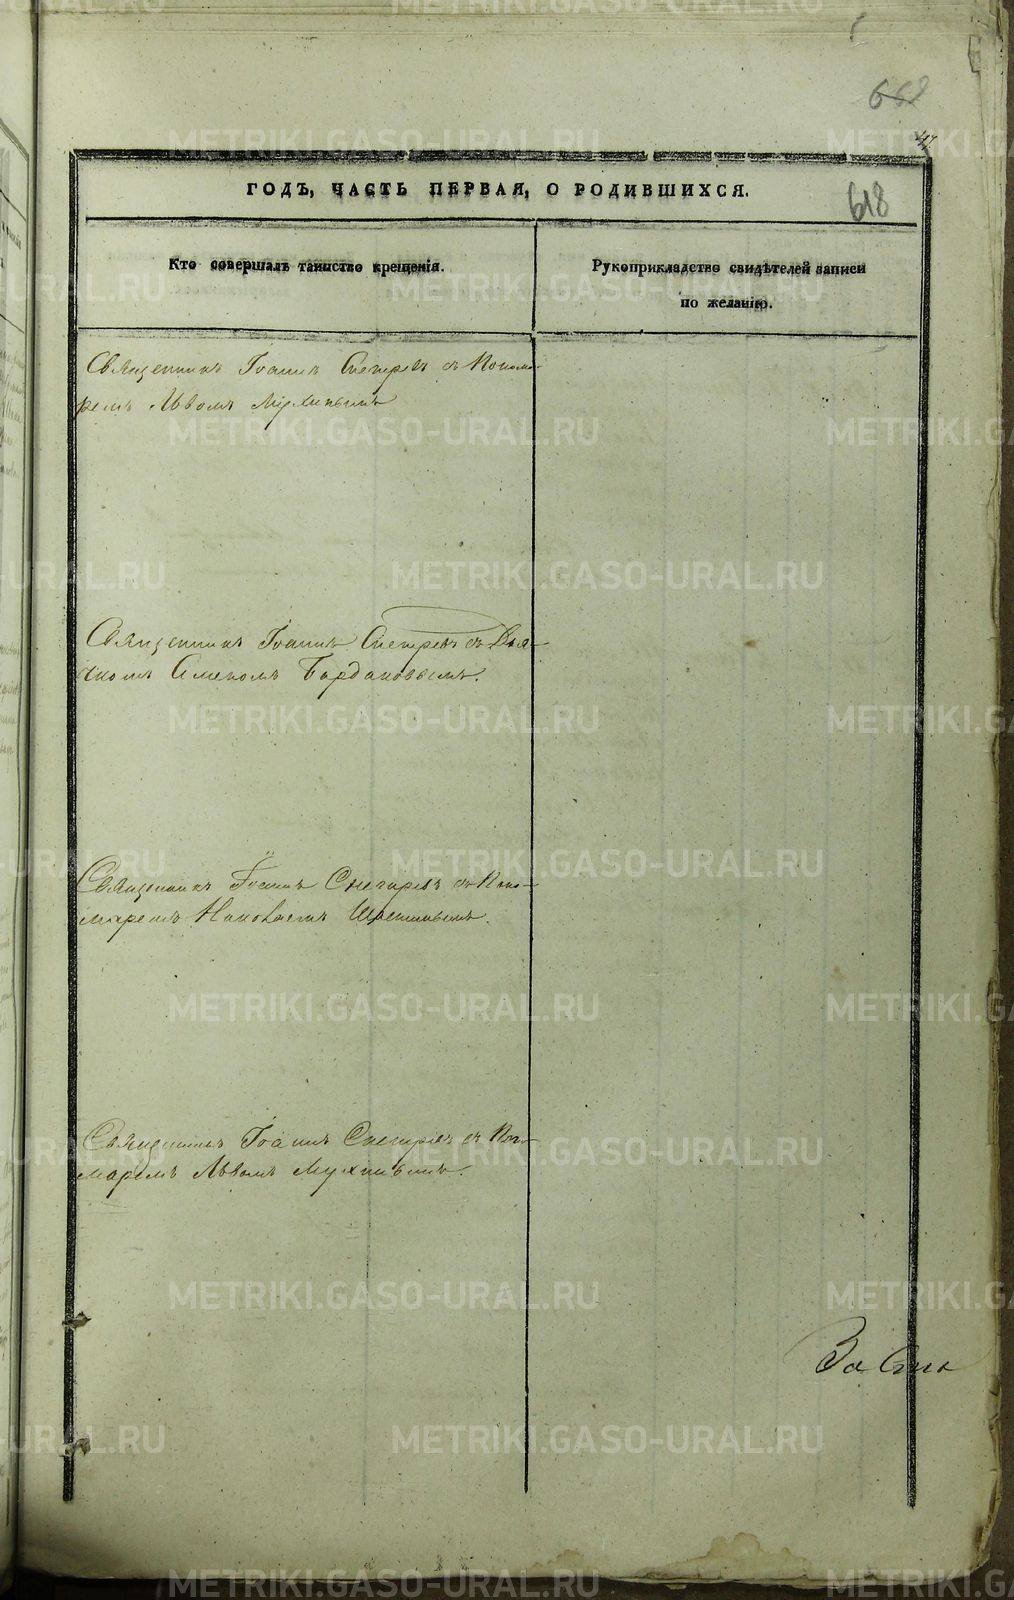 668
47
618
ГОДЪ, ЧАСТЬ ПЕРВАЯ, О РОДИВШИХСЯ.
Кто совершалъ таинство крещенія.
Рукоприкладство свидѣтелей записи
по желанію.
Священникъ Іоаннъ Снегирев съ Поном-
ремъ Львомъ Мухинымъ
Священникъ Іоаннъ Снегиревъ съ Дья-
Бардаковымъ.
Священникъ Іоаннъ Снегиревъ съ Поно-
маремъ Николаемъ
Священникъ Іоаннъ Снегиревъ съ Поно-
маремъ Львомъ Мухинымъ.
METRIKI.GASO-URAL.RU